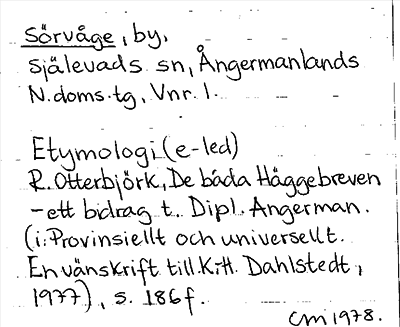 Sörvåge, by,
Själevads sn, Ångermanlands
N.doms.tg, Vnr. 1.
Etymologi (e-led)
R. Otterbjörk, De båda Häggebreven
- ett bidrag t. Dipl. Angerman.
(i: Provinsiellt och universellt.
En vänskrift till K.-H. Dahlstedt,
1977), s. 186 f.
CM 1978.